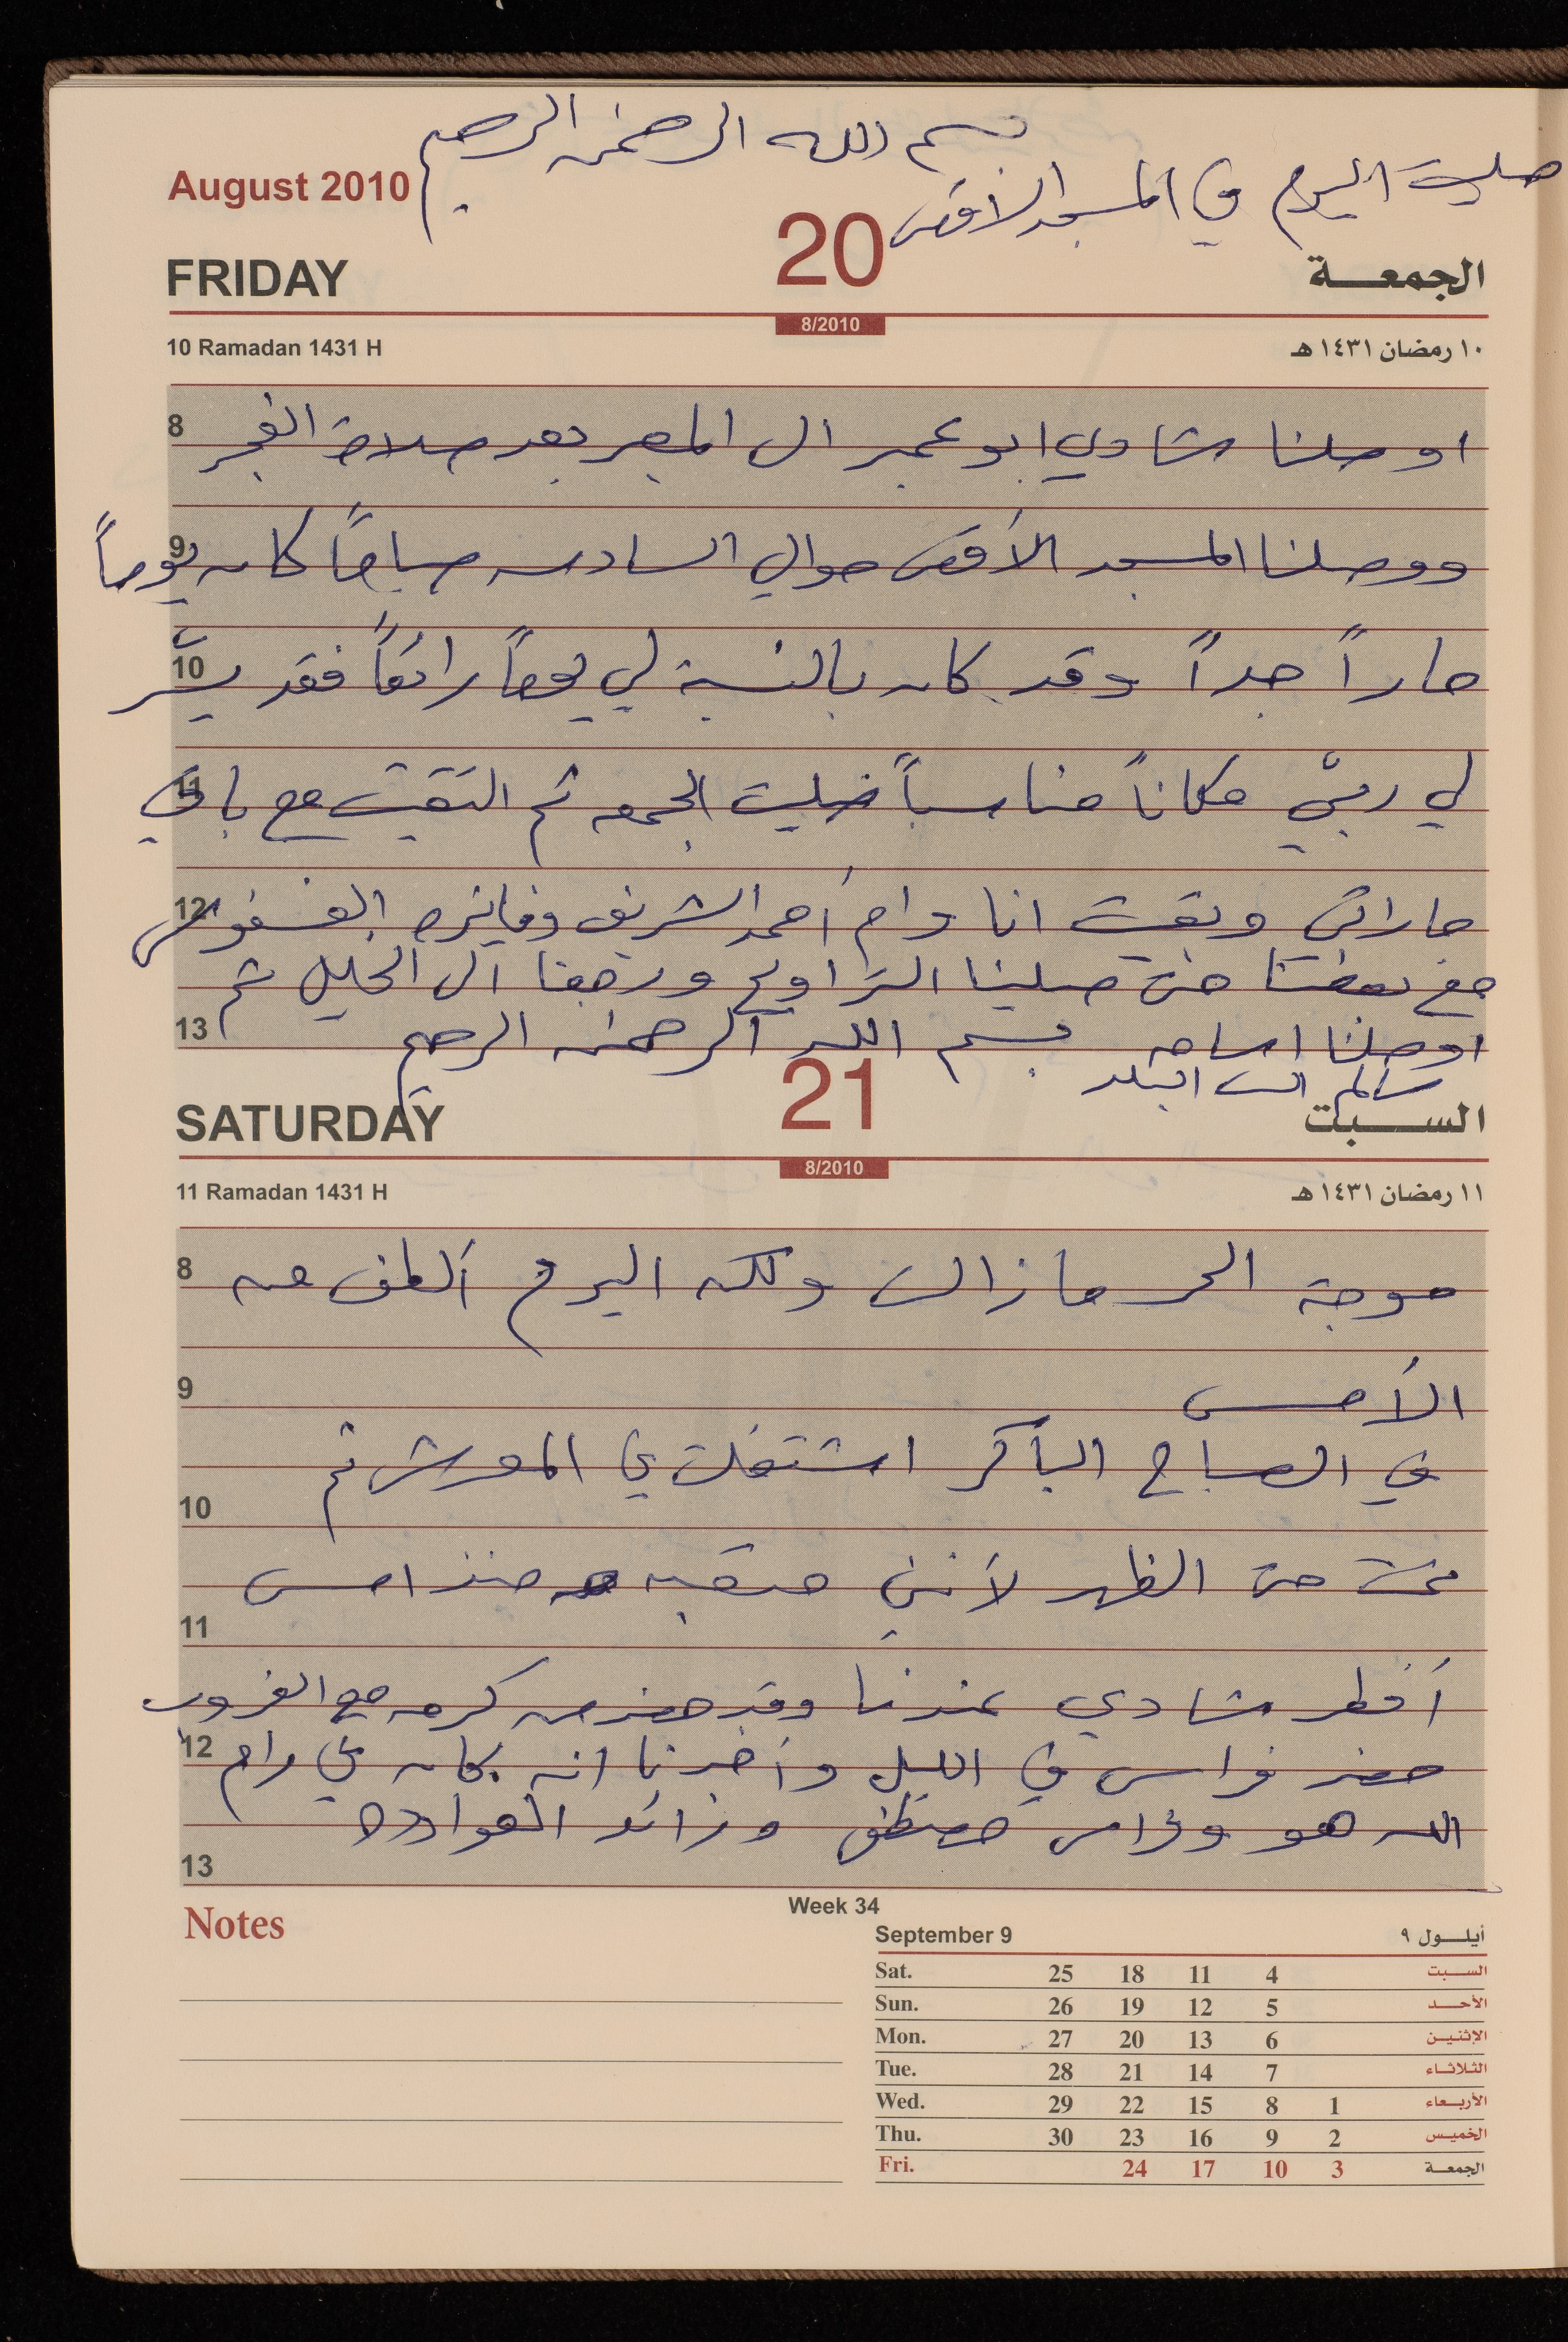 بسم الله الرحمن الرحيم
صليت اليوم في المسجد الأقصى
August 2010
20
FRIDAY
الجمعـــة
8/2010
10 Ramadan 1431 H
١٠ رمضان ١٤٣١ هـ
8
اوصلنا شادي ابو عمير الى المعبر بعد صلاة الفجر
9
ووصلنا المسجد الأقصى حوالي السادسه صباحاً كان يوماً
10
حاراً جداً وقد كان بالنسبة لي يوماً رائعاً فقد يسّر
11
لي ربيّ مكاناً مناسباً صليت الجمعه ثم التقيت مع باقي
12
جاراتي وبقيت انا وام أحمد الشريف وفايزه
مع بعضنا حتى صلينا التراويح ورجعنا الى الخليل ثم
13
اوصلنا اسامه
سالم الى البلد
بسم الله الرحمن الرحيم
21
SATURDAY
الســـبت
8/2010
11 Ramadan 1431 H
١١ رمضان ١٤٣١ هـ
8
موجة الحر ما زالت ولكن اليوم ألطف من
9
الأمس
في الصباح الباكر اشتغلت في المعرش ثم
10
نمت حتى الظهر لأنني متعبه منذ امس
11
أفطر شادي عندنا وقد حضر من كرمه مع الغروب
12
حضر فراس في الليل وأخبرنا انه كان في رام
الله هو وفراس مصطفى ورائد العوادده
13
Notes
Week 34
September 9
أيلـــول ٩
Sat. 25 18 11 4 الســـبت
Sun. 26 19 12 5 الأحـــد
Mon. 27 20 13 6 الإثنـين
Tue. 28 21 14 7 الثلاثـاء
Wed. 29 22 15 8 1 الأربـعاء
Thu. 30 23 16 9 2 الخميـس
Fri. 24 17 10 3 الجمعـــة